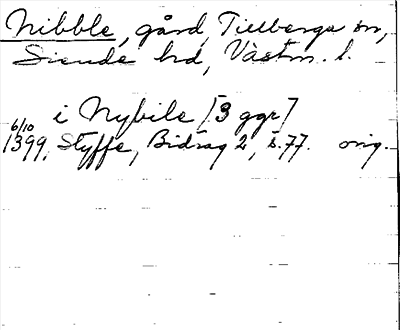 Nibble, gård, Tillberga sn,
Siende hd, Västm. l.
i Nybile [3 ggr]
6/10
1399, Styffe, Bidrag 2, s. 77. orig.